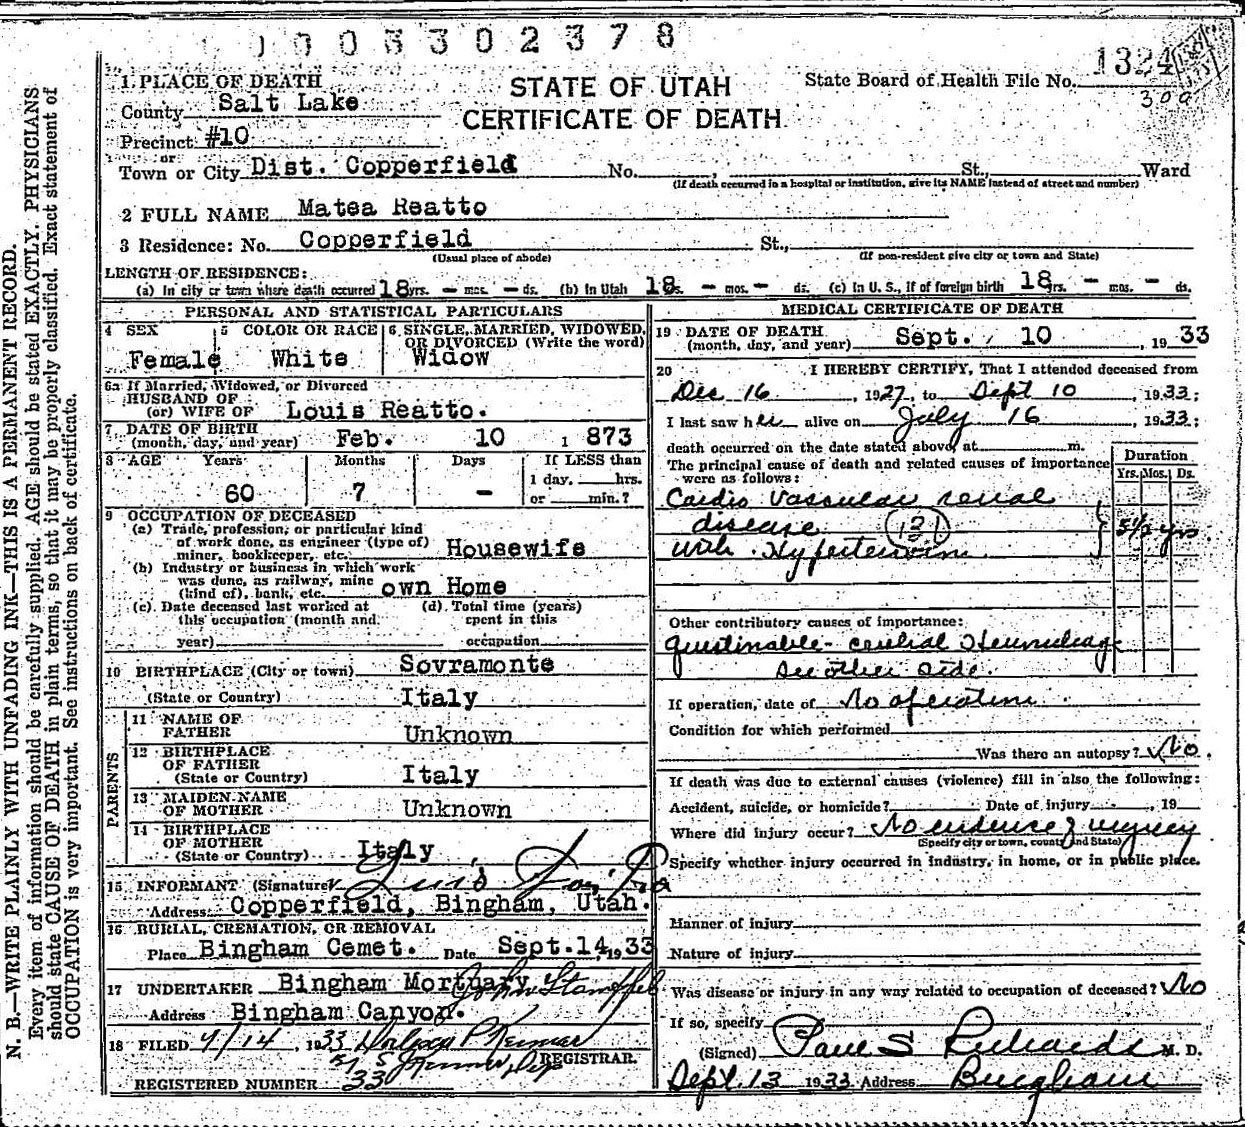 1003302378
1. PLACE OF DEATH
STATE OF UTAH
CERTIFICATE OF DEATH
State Board of Health File No. 1324
300
County Salt Lake
Precinct #10
or
Town or City Dist. Copperfield No. , St., Ward
(If death occurred in a hospital or institution, give its NAME instead of street and number)
2 FULL NAME Matea Reatto
3 Residence: No. Copperfield St.,
(Usual place of abode) (If non-resident give city or town and State)
LENGTH OF RESIDENCE:
(a) In city or town where death occurred 18 yrs. - mos. - ds. (b) In Utah 18 yrs. - mos. - ds. (c) In U. S., if of foreign birth 18 yrs. - mos. - ds.
PERSONAL AND STATISTICAL PARTICULARS
4 SEX 5 COLOR OR RACE 6 SINGLE, MARRIED, WIDOWED, OR DIVORCED (Write the word)
Female White Widow
6a If Married, Widowed, or Divorced
HUSBAND OF
(or) WIFE OF Louis Reatto.
7 DATE OF BIRTH
(month, day, and year) Feb. 10 1 873
8 AGE Years Months Days If LESS than
1 day, hrs.
60 7 - or min.?
9 OCCUPATION OF DECEASED
(a) Trade, profession, or particular kind
of work done, as engineer (type of)
miner, bookkeeper, etc. Housewife
(b) Industry or business in which work
was done, as railway, mine
(kind of), bank, etc. own Home
(c) Date deceased last worked at (d) Total time (years)
this occupation (month and spent in this
year) occupation
10 BIRTHPLACE (City or town) Sovramonte
(State or Country) Italy
PARENTS
11 NAME OF
FATHER Unknown
12 BIRTHPLACE
OF FATHER
(State or Country) Italy
13 MAIDEN NAME
OF MOTHER Unknown
14 BIRTHPLACE
OF MOTHER
(State or Country) Italy
15 INFORMANT (Signature)
Address: Copperfield, Bingham, Utah.
16 BURIAL, CREMATION, OR REMOVAL
Place Bingham Cemet. Date Sept.14, 1933
17 UNDERTAKER Bingham Mortuary
Address Bingham Canyon.
18 FILED 9/14, 1933
REGISTRAR.
REGISTERED NUMBER 33
MEDICAL CERTIFICATE OF DEATH
19 DATE OF DEATH
(month, day, and year) Sept. 10, 1933
20 I HEREBY CERTIFY, That I attended deceased from
Dec 16, 1927, to Sept 10, 1933;
I last saw her alive on July 16 1933;
death occurred on the date stated above, at m.
The principal cause of death and related causes of importance
were as follows:
Duration
Yrs. Mos. Ds.
Cardio Vascular renal
disease (121) 5 1/2 yrs.
with Hypertension
Other contributory causes of importance:
Questinable - cerebral Hemorrhage
see other side.
If operation, date of No operation
Condition for which performed
Was there an autopsy? No.
If death was due to external causes (violence) fill in also the following:
Accident, suicide, or homicide? Date of injury , 19
Where did injury occur? No evidence of injury
(Specify city or town, county and State)
Specify whether injury occurred in industry, in home, or in public place.
Manner of injury
Nature of injury
Was disease or injury in any way related to occupation of deceased? No
If so, specify
(Signed) Paul S Richards M. D.
Sept 13 1933 Address Bingham
N. B.—WRITE PLAINLY WITH UNFADING INK—THIS IS A PERMANENT RECORD.
Every item of information should be carefully supplied. AGE should be stated EXACTLY. PHYSICIANS
should state CAUSE OF DEATH in plain terms, so that it may be properly classified. Exact statement of
OCCUPATION is very important. See instructions on back of certificate.